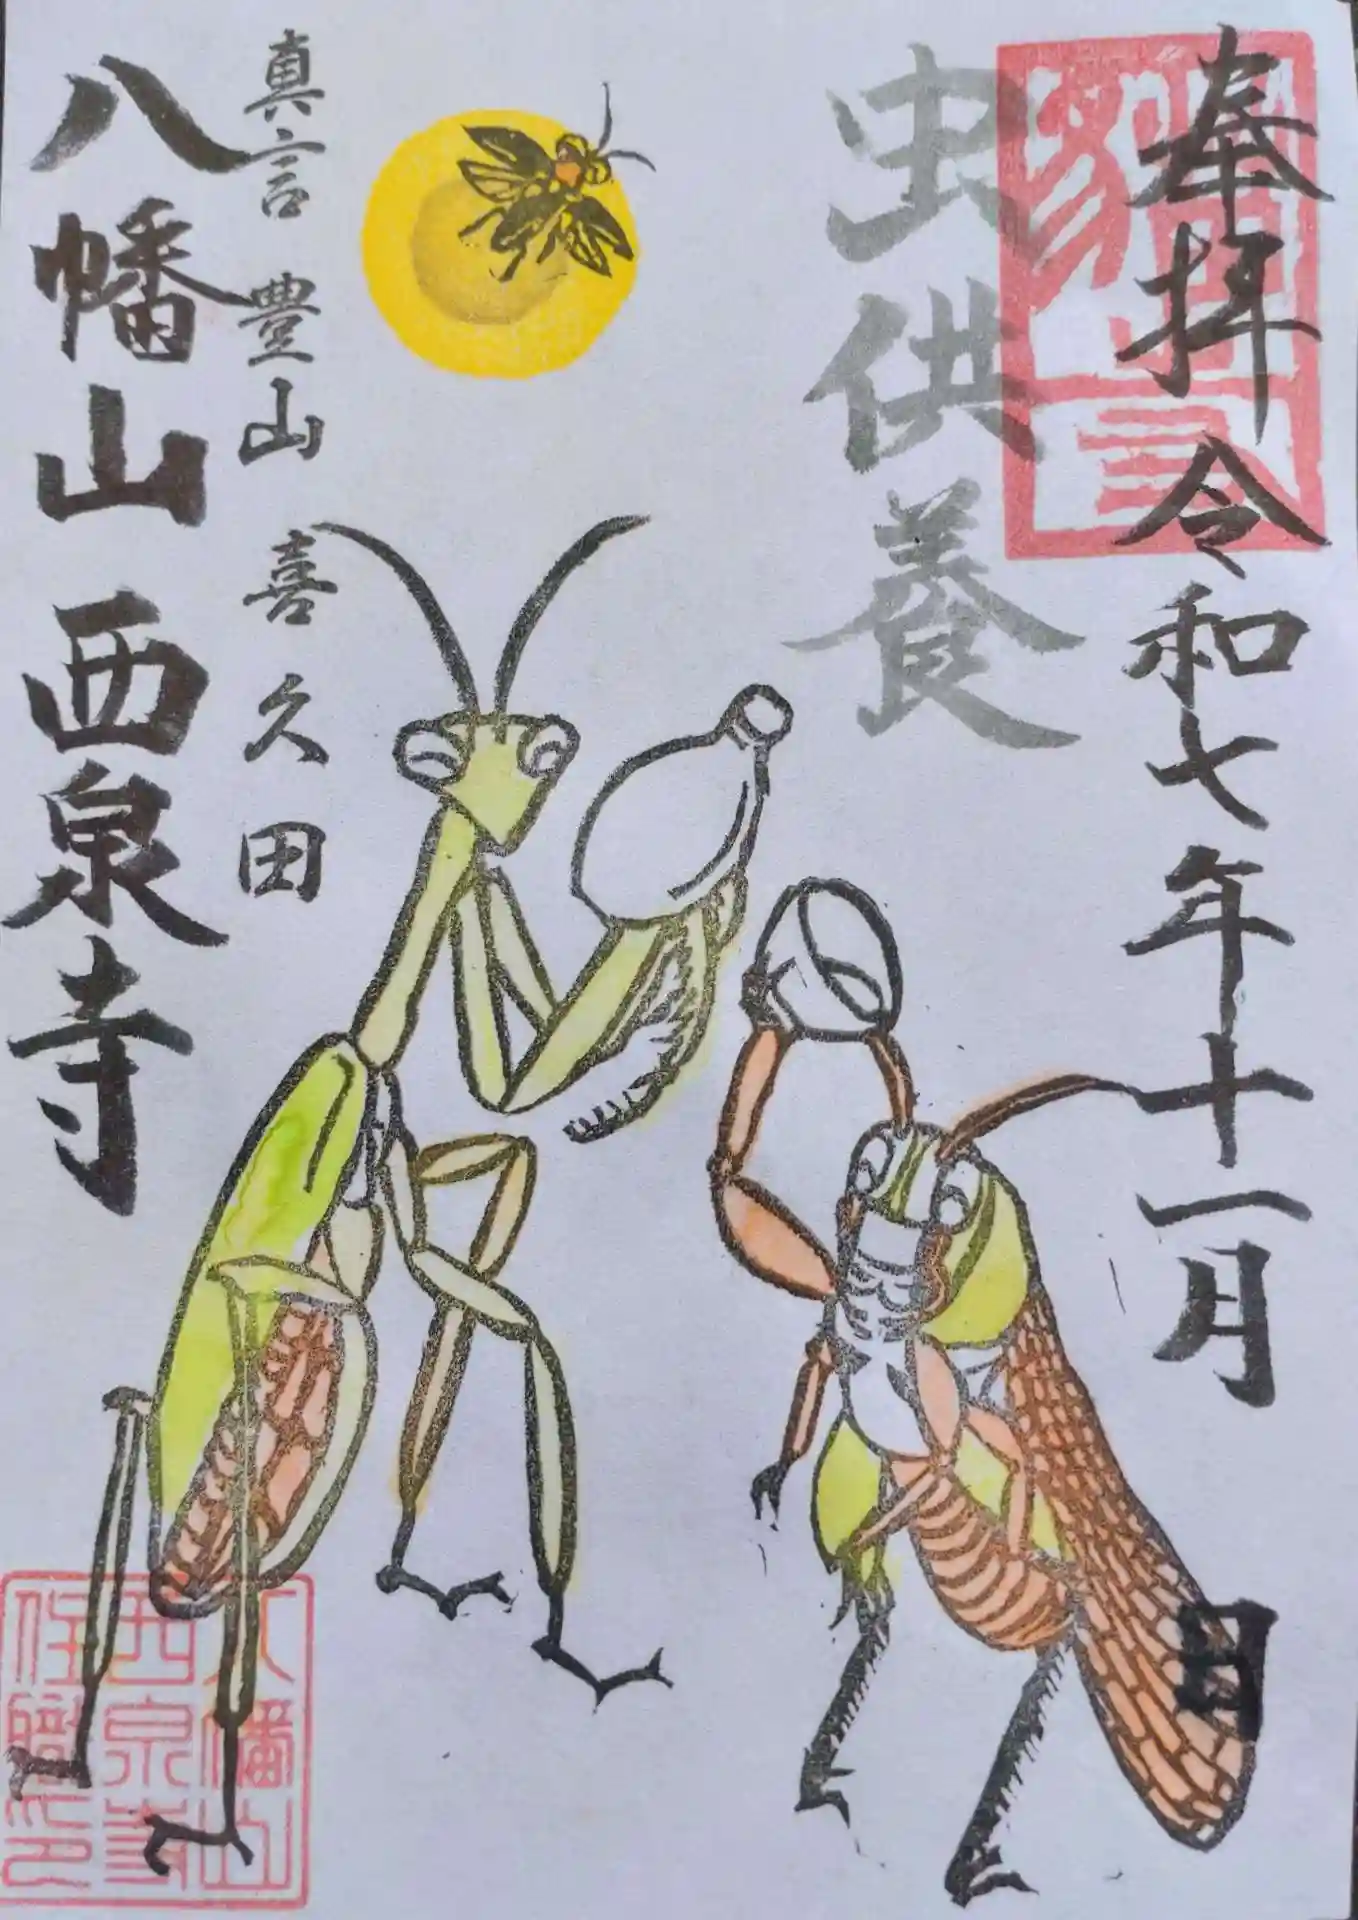 奉拝 令和七年十一月 日
虫供養
真言 豊山 喜久田
八幡山 西泉寺
八幡山
西泉寺
住職之印